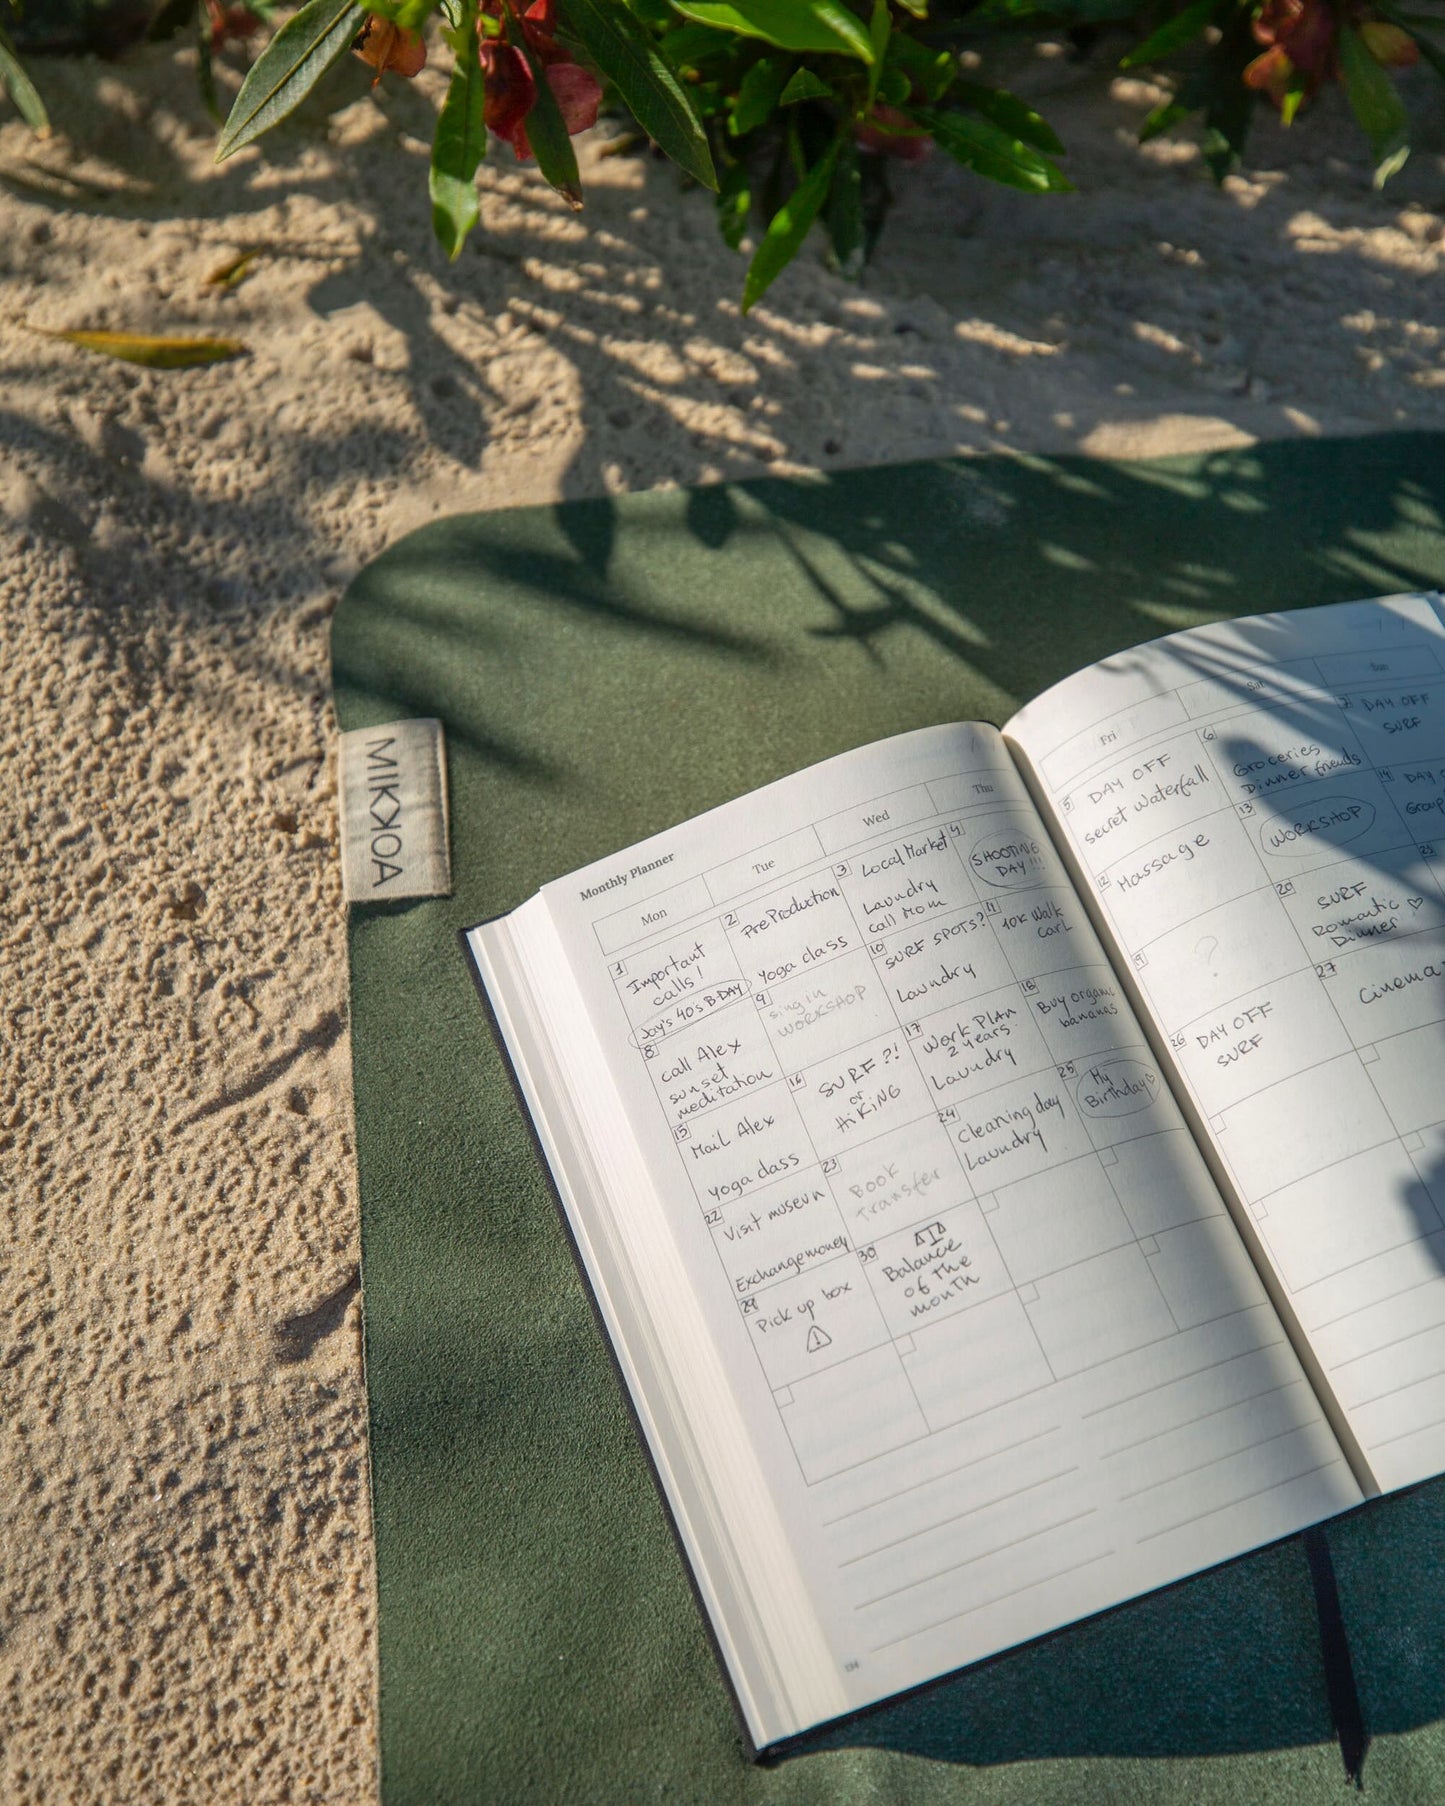 MIKKOA
Monthly Planner
Mon
Tue
Wed
Thu
1
Important
calls!
Jay's 40's B-DAY
2
PreProduction
yoga class
3
Local Market
Laundry
call Mom
4
SHOOTING
DAY !!!
8
call Alex
sunset
meditation
9
sing in
WORKSHOP
10
SURF SPOTS?
Laundry
11
10K Walk
CarL
15
Mail Alex
yoga class
16
SURF ?!
or
HiKiNG
17
Work PLAN
2 years.
Laundry
18
Buy organic
bananas
22
Visit museun
Exchange money
23
BOOK
Transfer
24
Cleaning day
Laundry
25
My
Birthday
29
Pick up box
!
30
Balance
of the
month
134
Fri
Sat
Sun
5
DAY OFF
secret waterfall
6
Groceries
Dinner friends
7
DAY OFF
SURF
12
Massage
13
WORKSHOP
14
DAY
Group
19
?
20
SURF
Romantic ♡
Dinner
21
26
DAY OFF
SURF
27
Cinema